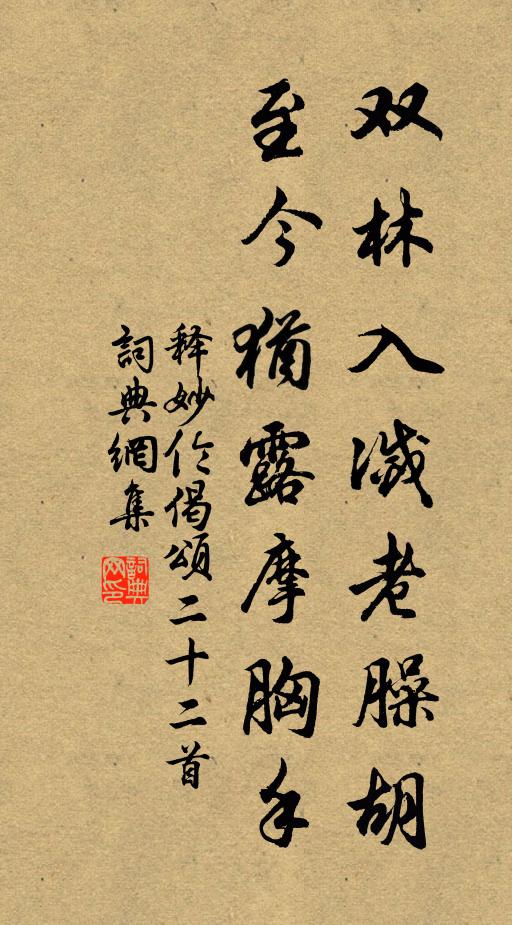 双林入灭老臊胡
至今猶露摩胸手
释妙伦偈頌二十二首
詞典網集
詞典网印